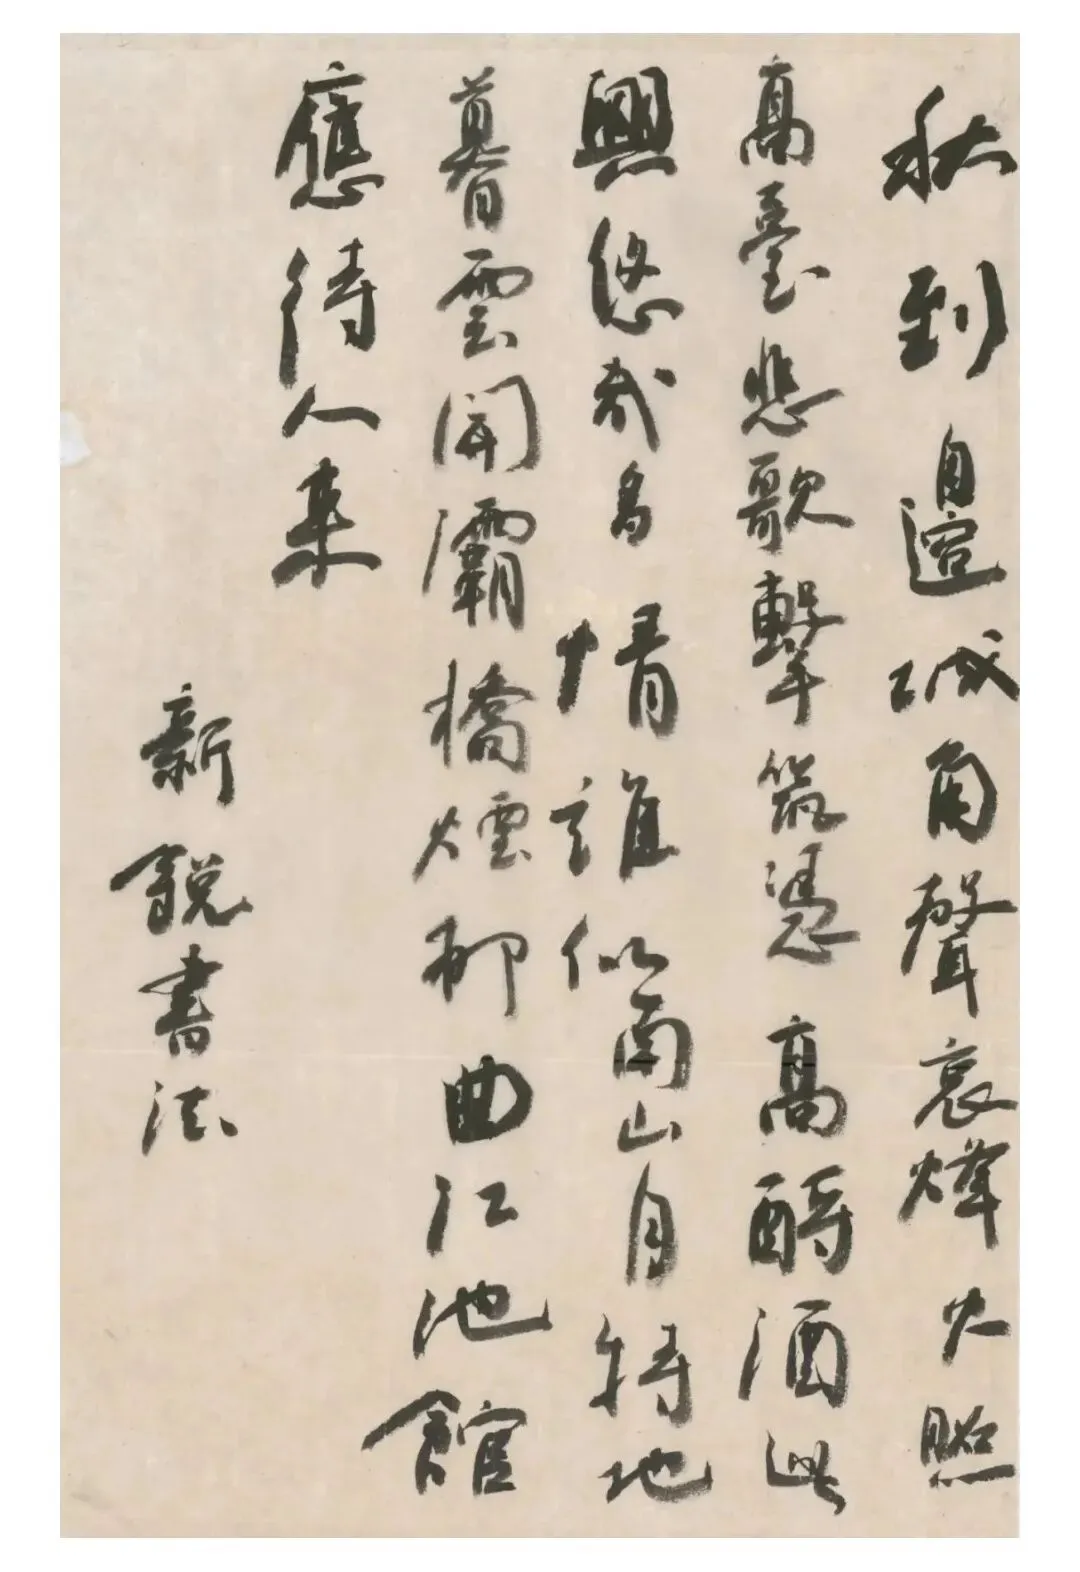 秋到邊城角聲哀烽火照
高臺悲歌擊筑憑高酹酒此
興悠哉多情誰似南山月特地
暮雲開灞橋煙柳曲江池館
應待人来
新銳書法